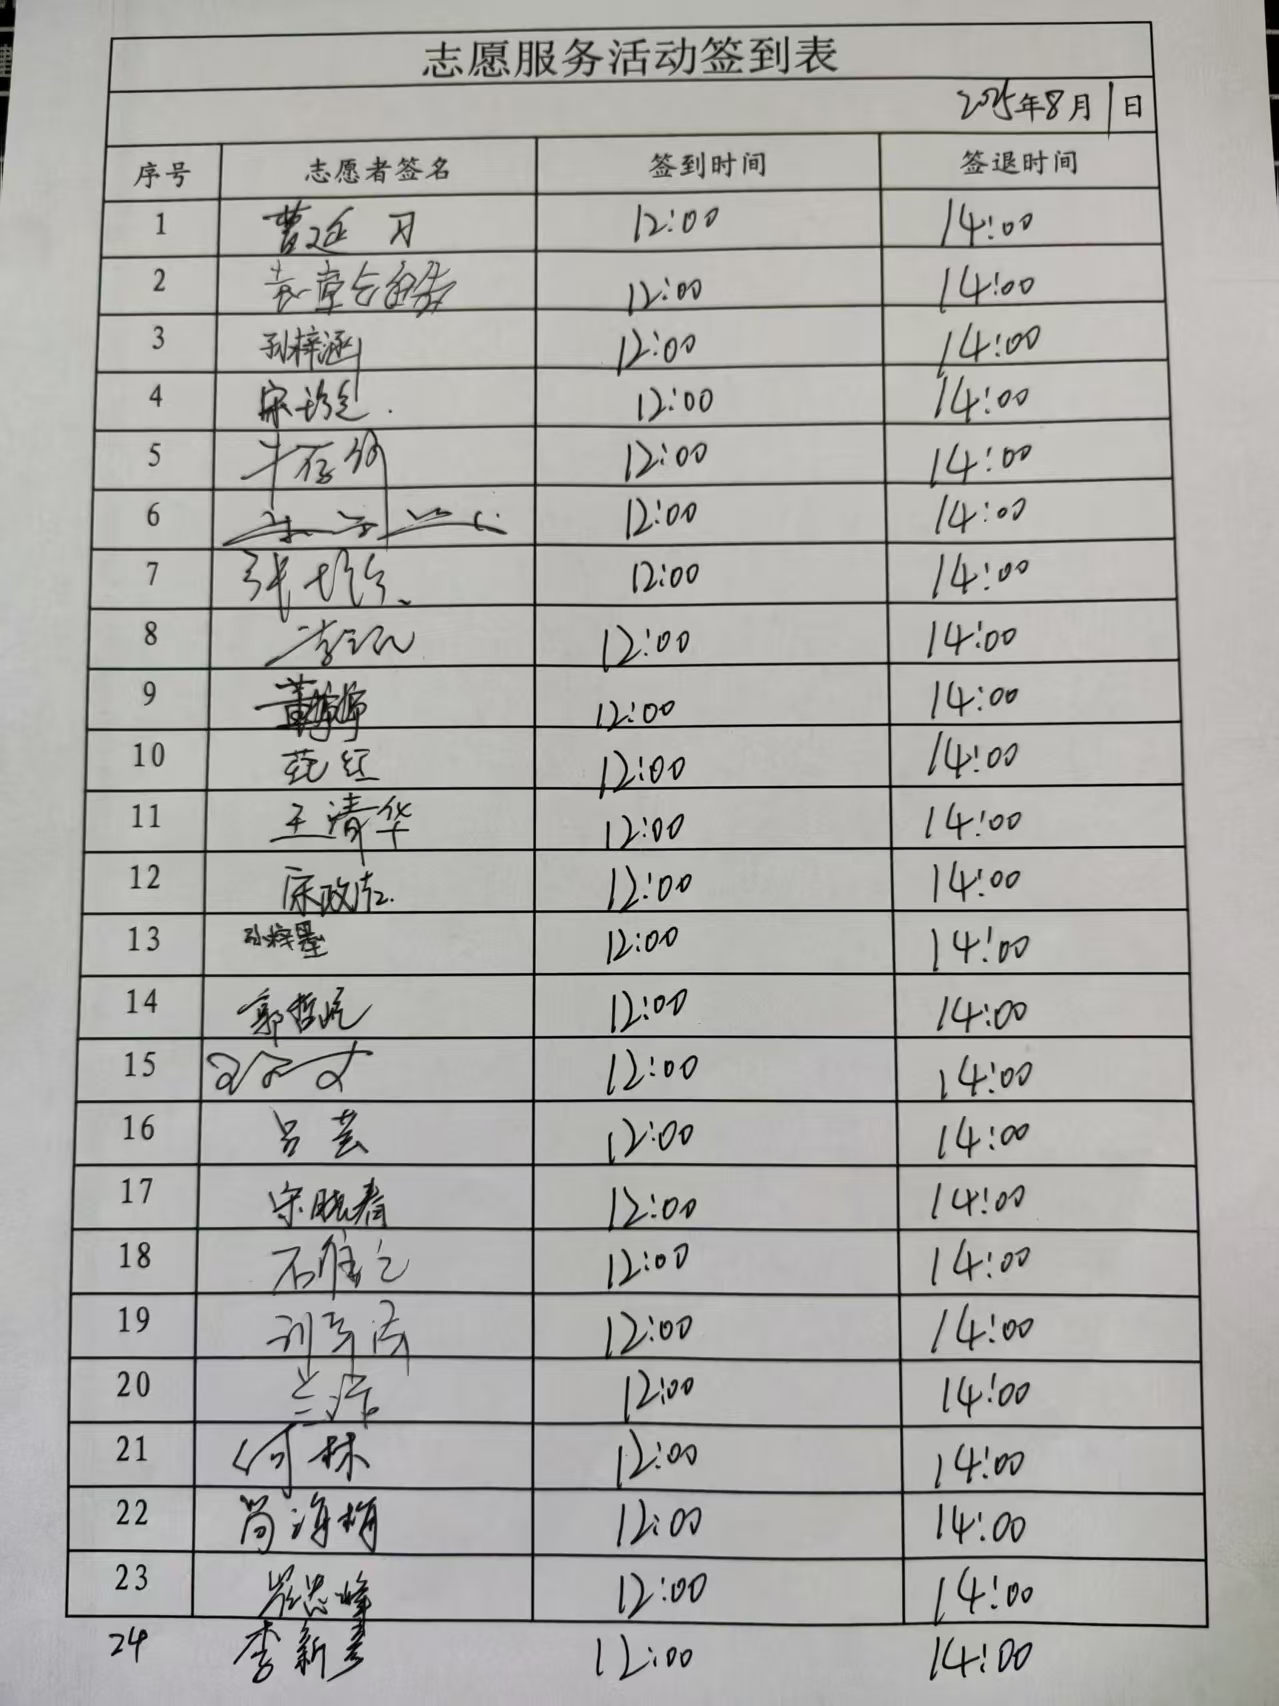 志愿服务活动签到表
2025年8月1日
序号 志愿者签名 签到时间 签退时间
1 曹延 月 12:00 14:00
2 12:00 14:00
3 孙梓涵 12:00 14:00
4 宋 12:00 14:00
5 12:00 14:00
6 12:00 14:00
7 张 12:00 14:00
8 李 12:00 14:00
9 董 12:00 14:00
10 红 12:00 14:00
11 王清华 12:00 14:00
12 12:00 14:00
13 孙梓墨 12:00 14:00
14 郭哲 12:00 14:00
15 12:00 14:00
16 吕芸 12:00 14:00
17 宋晓春 12:00 14:00
18 石 12:00 14:00
19 刘 12:00 14:00
20 兰 12:00 14:00
21 何林 12:00 14:00
22 尚海梅 12:00 14:00
23 志峰 12:00 14:00
24 李新 12:00 14:00